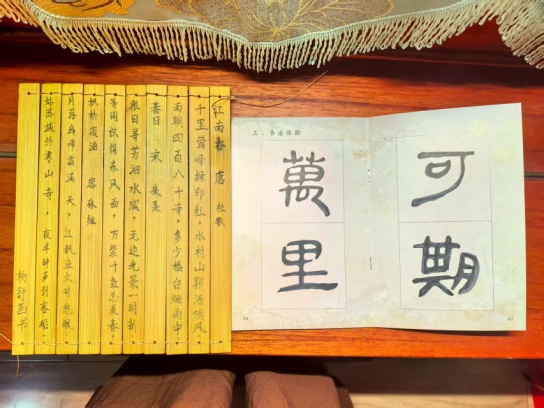 江南春 唐 杜牧
千里莺啼绿印红，水村山郭酒旗风。
南朝四百八十寺，多少楼台烟雨中
春日 宋 朱熹
胜日寻芳泗水滨，无边光景一时新
等闲识得东风面，万紫千红总是春
枫桥夜泊 唐 张继
月落乌啼霜满天，江枫渔火对愁眠
姑苏城外寒山寺，夜半钟声到客船。
三、书法体验
可期
萬里
67